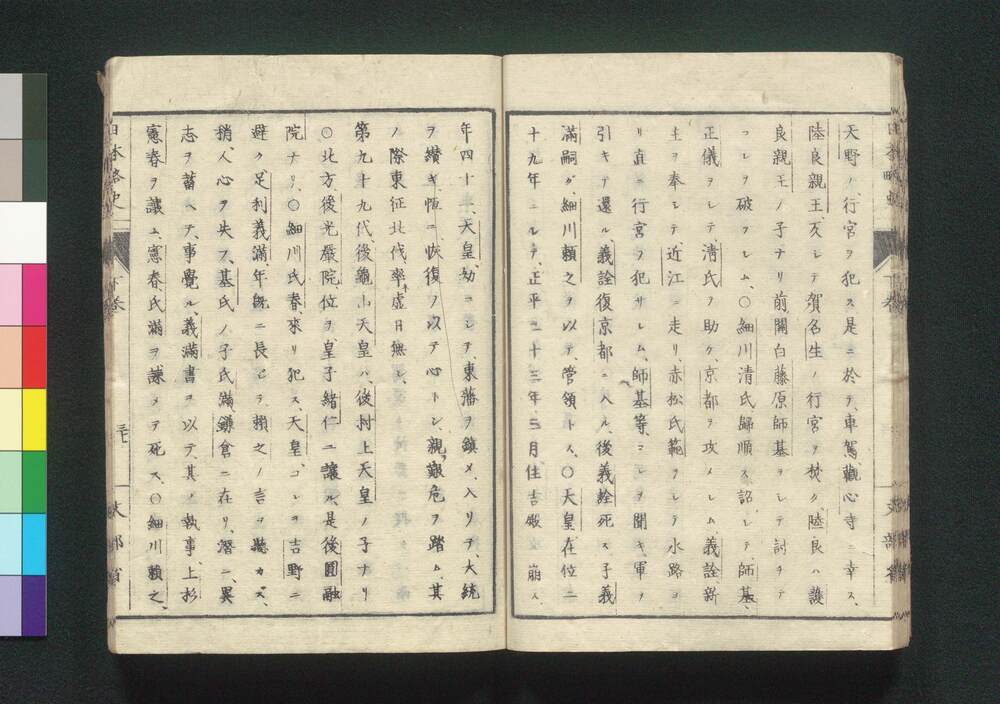 天野ノ行宮ヲ犯ス是ニ於テ、車駕、觀心寺ニ幸ス、
陸良親王、反シテ賀名生ノ行宮ヲ焚ク、陸良ハ護
良親王ノ子ナリ前關白藤原師基ヲシテ討チテ
コレヲ破ラシム、〇細川清氏、歸順ス詔シテ、師基、
正儀ヲシテ、清氏ヲ助ケ、京都ヲ攻メシム、義詮、新
主ヲ奉シテ近江ニ走リ、赤松氏範ヲシテ水路ヨ
リ直ニ行宮ヲ犯サシム、師基等、コレヲ聞キ、軍ヲ
引キテ還ル義詮復京都ニ入ル、後義詮死ス子義
滿嗣グ、細川賴之ヲ以テ、管領トス、〇天皇、在位二
十九年ニシテ、正平二十三年、三月住吉殿ニ崩ス、
年四十一、天皇、幼ニシテ、東藩ヲ鎭メ、入リテ、大統
ヲ纉ギ、恒ニ恢復ヲ以テ心トシ、親、艱危ヲ踏ム、其
ノ際東征北伐、率虚日無シ、
第九十九代、後龜山天皇ハ、後村上天皇ノ子ナリ
〇北方、後光嚴院、位ヲ皇子緒仁ニ讓ル、是後圓融
院ナリ、〇細川氏春、來リ犯ス、天皇、コレヲ吉野ニ
避ク足利義滿、年既ニ長シテ、賴之ノ言ヲ聽カズ、
稍、人心ヲ失フ、基氏ノ子氏滿、鎌倉ニ在リ、潛ニ、異
志ヲ蓄ヘテ、事覺ル、義滿書ヲ以テ、其ノ執事、上杉
憲春ヲ讓ム、憲春氏滿ヲ諫メテ死ス、〇細川賴之、
日本略史
下卷
三七
文部省